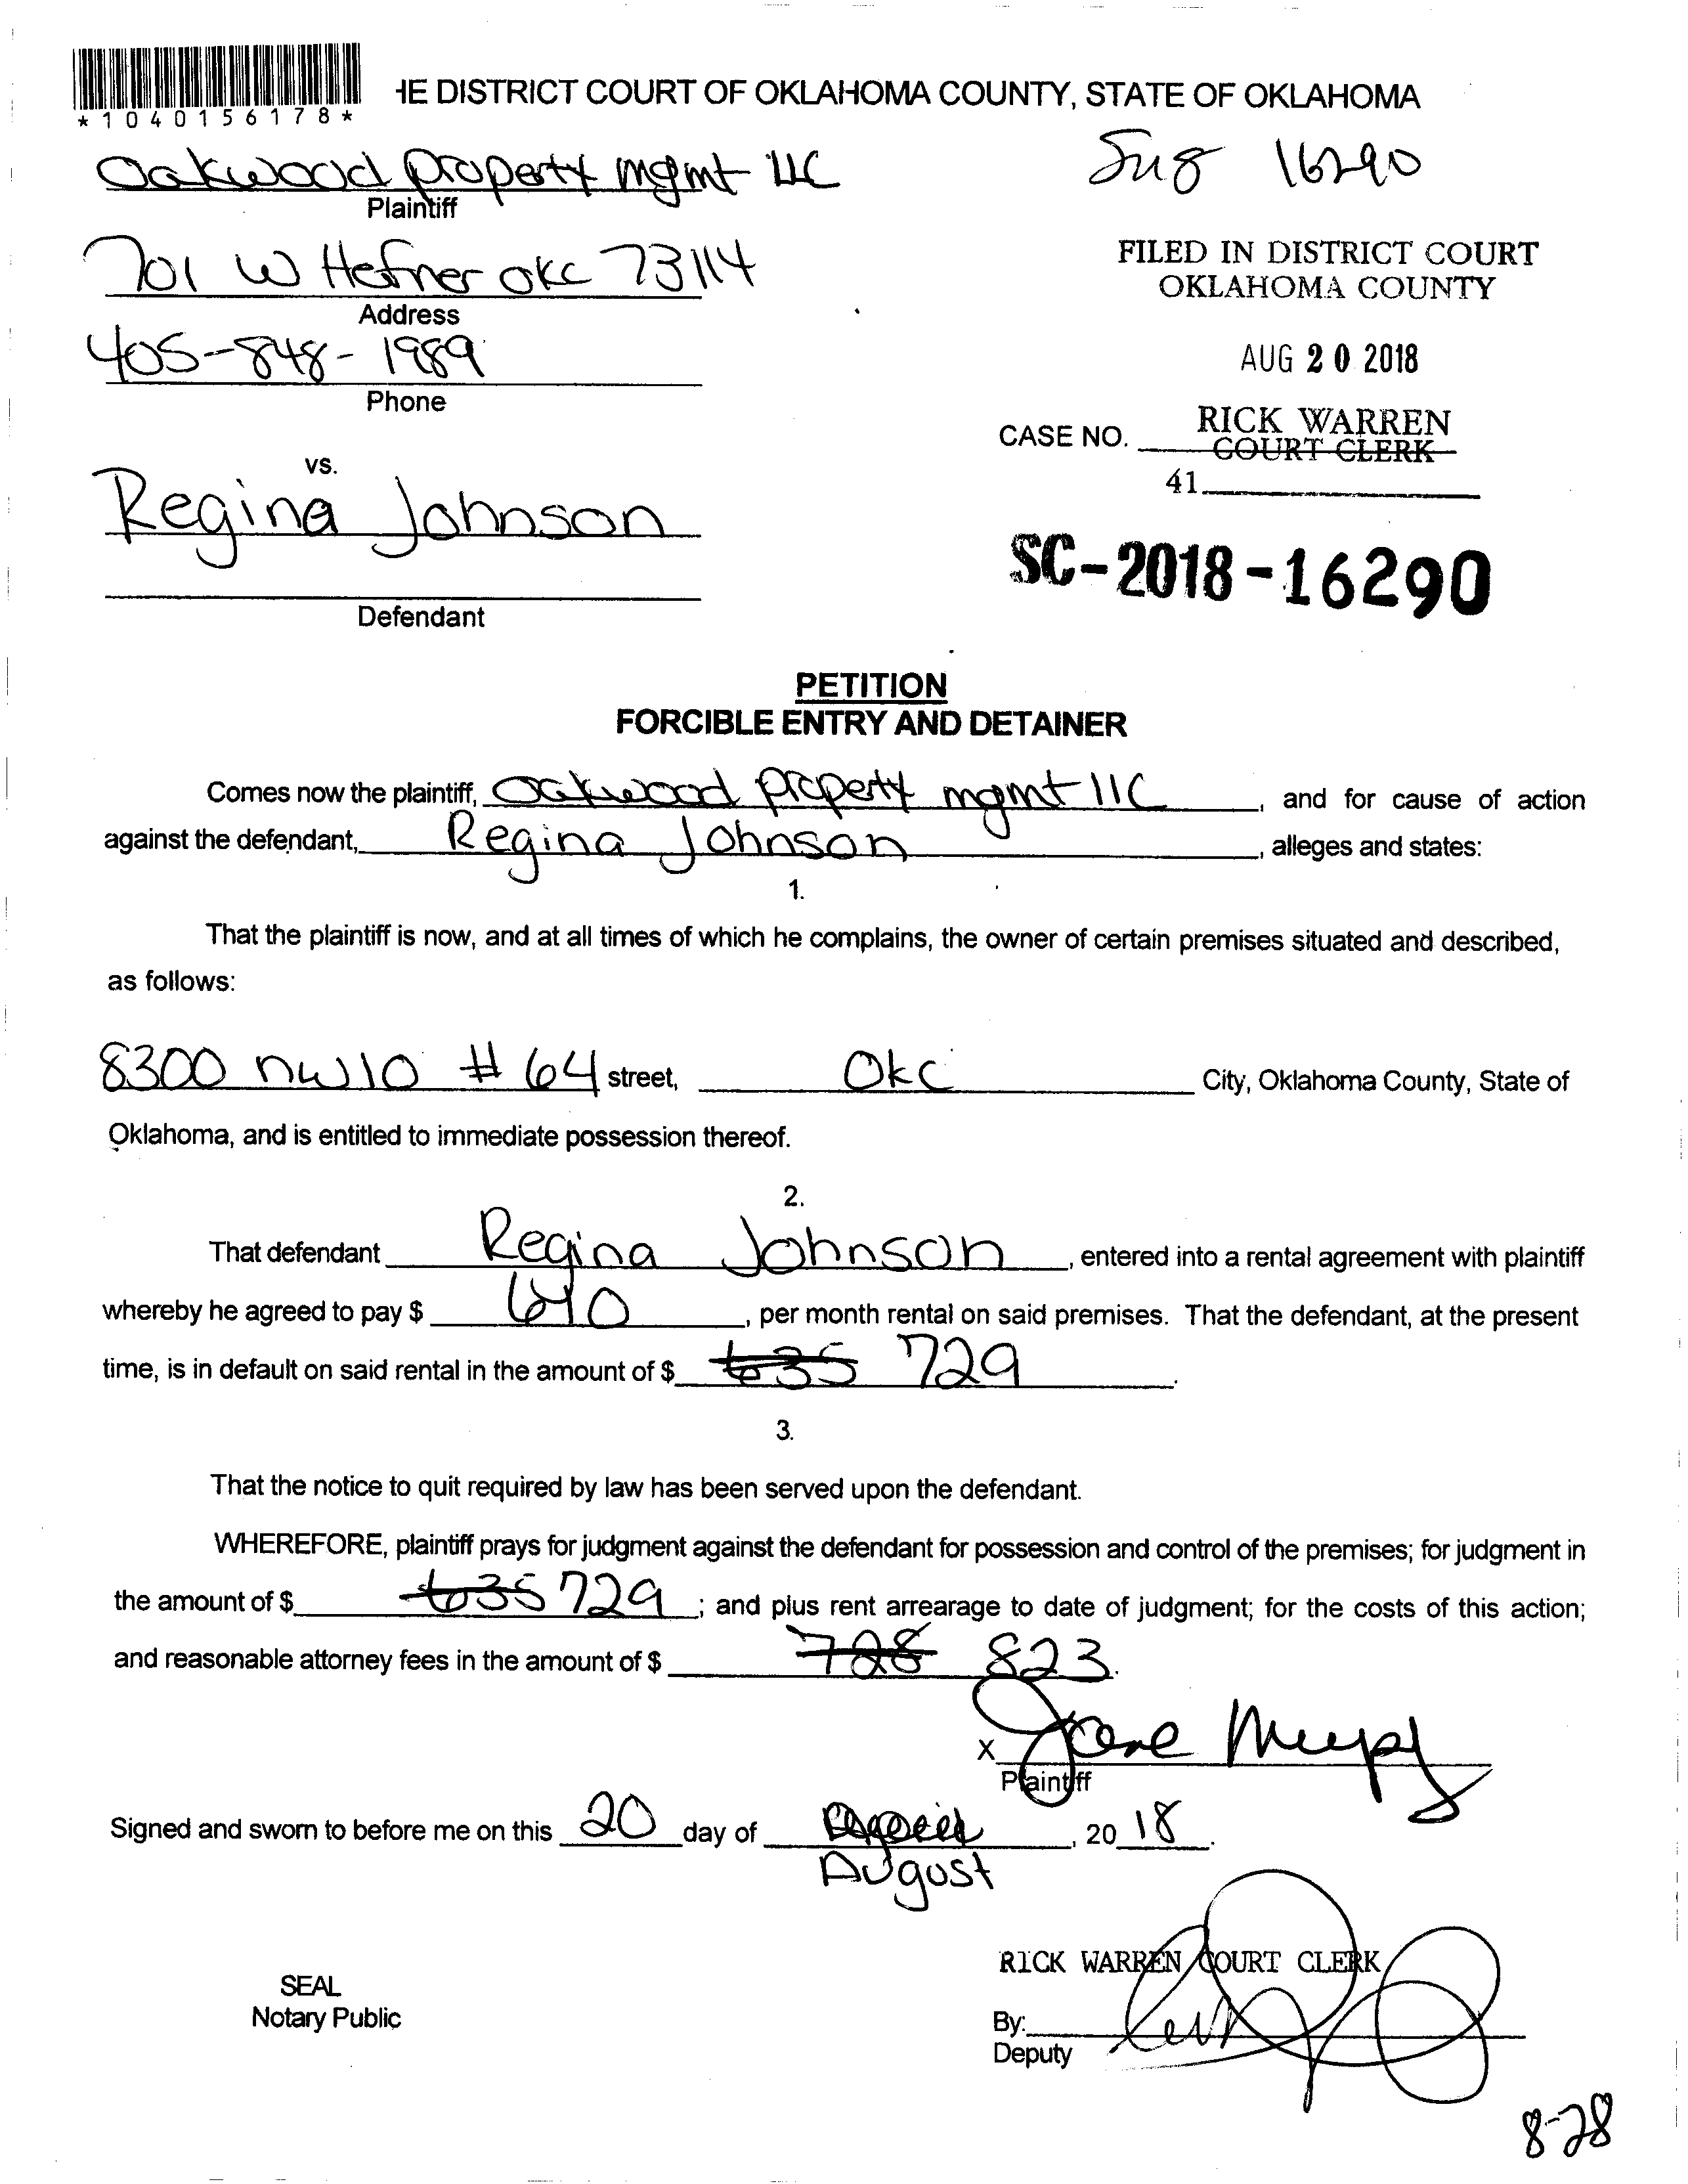 *1040156178*
HE DISTRICT COURT OF OKLAHOMA COUNTY, STATE OF OKLAHOMA
Oakwood Property mgmt LLC
Plaintiff
16290
701 W Hefner OKC 73114
Address
405-848-1989
Phone
FILED IN DISTRICT COURT
OKLAHOMA COUNTY
AUG 20 2018
RICK WARREN
CASE NO. COURT CLERK
41
vs.
Regina Johnson
Defendant
SC-2018-16290
PETITION
FORCIBLE ENTRY AND DETAINER
Comes now the plaintiff, Oakwood Property mgmt llC, and for cause of action
against the defendant, Regina Johnson, alleges and states:
1.
That the plaintiff is now, and at all times of which he complains, the owner of certain premises situated and described,
as follows:
8300 nw 10 # 64 street, OKC City, Oklahoma County, State of
Oklahoma, and is entitled to immediate possession thereof.
2.
That defendant Regina Johnson, entered into a rental agreement with plaintiff
whereby he agreed to pay $ 640, per month rental on said premises. That the defendant, at the present
time, is in default on said rental in the amount of $ 635 729.
3.
That the notice to quit required by law has been served upon the defendant.
WHEREFORE, plaintiff prays for judgment against the defendant for possession and control of the premises; for judgment in
the amount of $ 635 729; and plus rent arrearage to date of judgment; for the costs of this action;
and reasonable attorney fees in the amount of $ 728 823.
X
Plaintiff
Signed and sworn to before me on this 20 day of , 20 18.
August
RICK WARREN COURT CLERK
SEAL
Notary Public
By:
Deputy
8-28